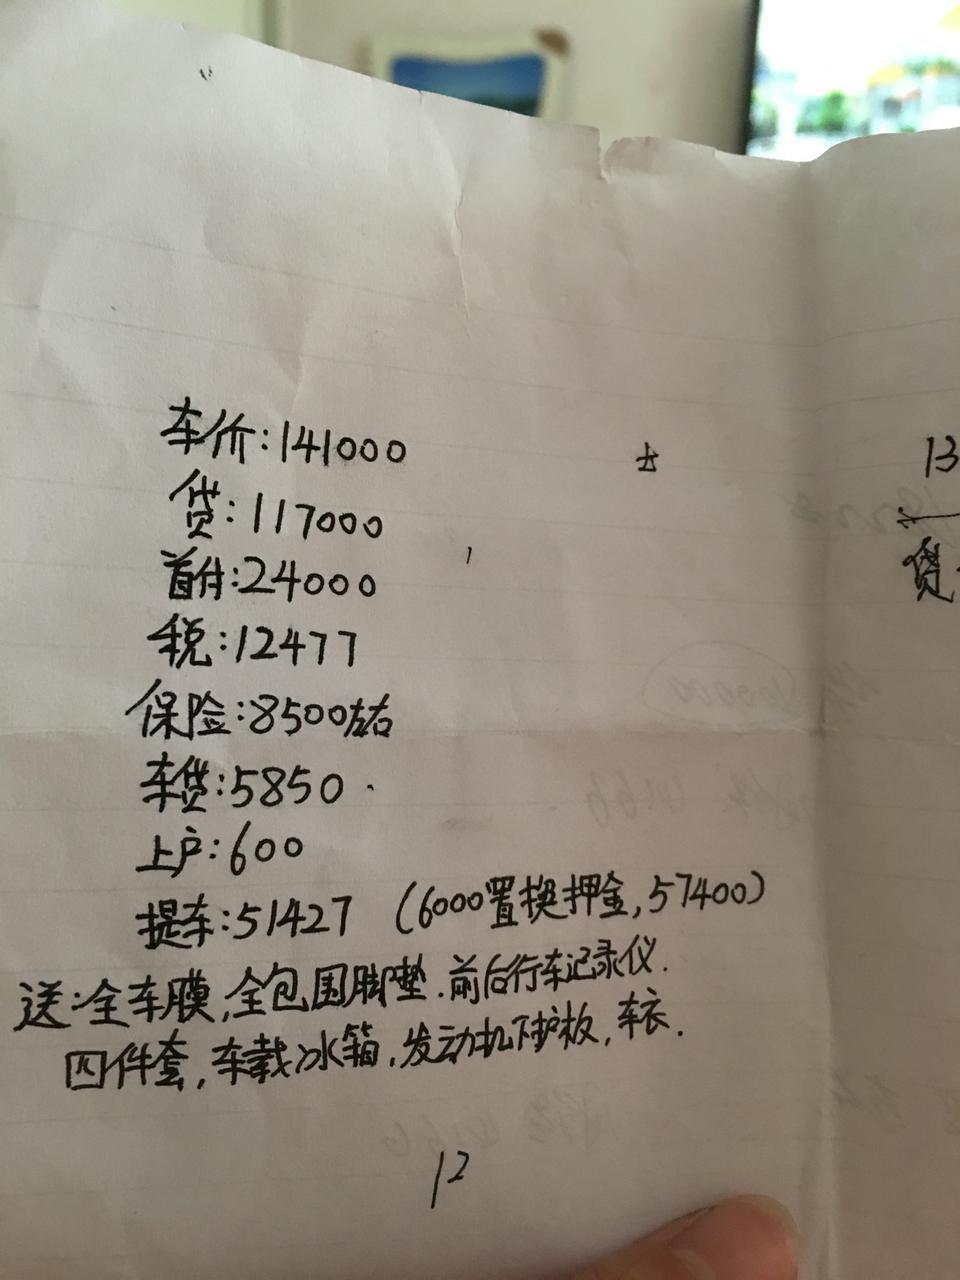 车价:141000
13
贷:117000
贷
首付:24000
税:12477
保险:8500左右
车贷:5850.
上户:600
提车:51427 (6000置换押金,57400)
送:全车膜,全包围脚垫.前后行车记录仪.
四件套,车载冰箱,发动机下护板,车衣.
12